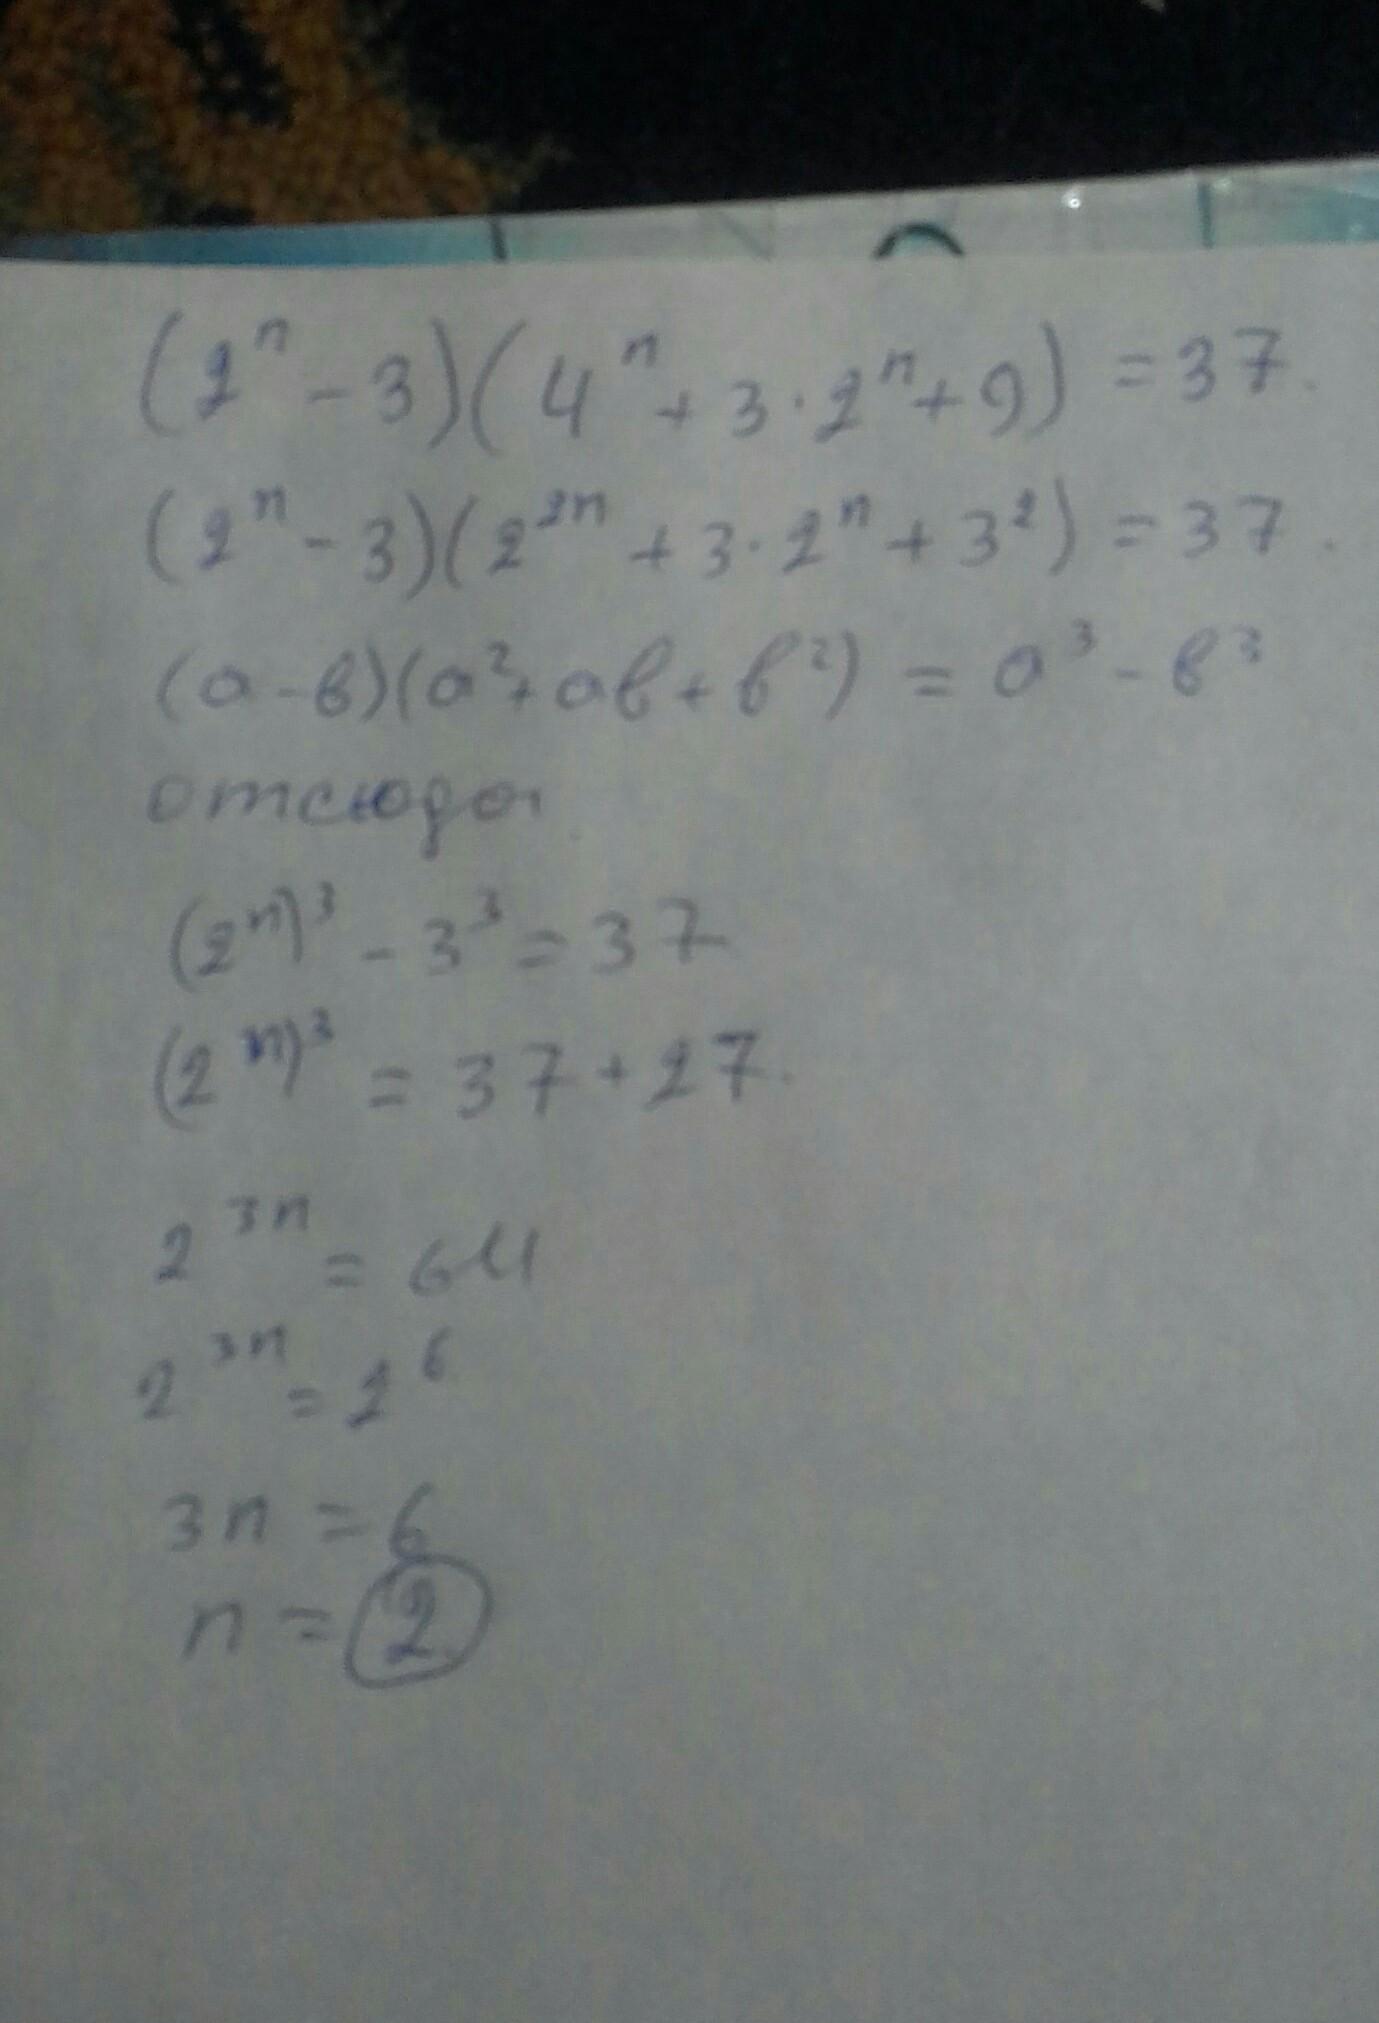 (2ⁿ - 3)(4ⁿ + 3 · 2ⁿ + 9) = 37.
(2ⁿ - 3)(2²ⁿ + 3 · 2ⁿ + 3²) = 37.
(а - в)(а² + ав + в²) = а³ - в³
отсюда
(2ⁿ)³ - 3³ = 37
(2ⁿ)³ = 37 + 27.
2³ⁿ = 64
2³ⁿ = 2⁶
3n = 6
n = 2